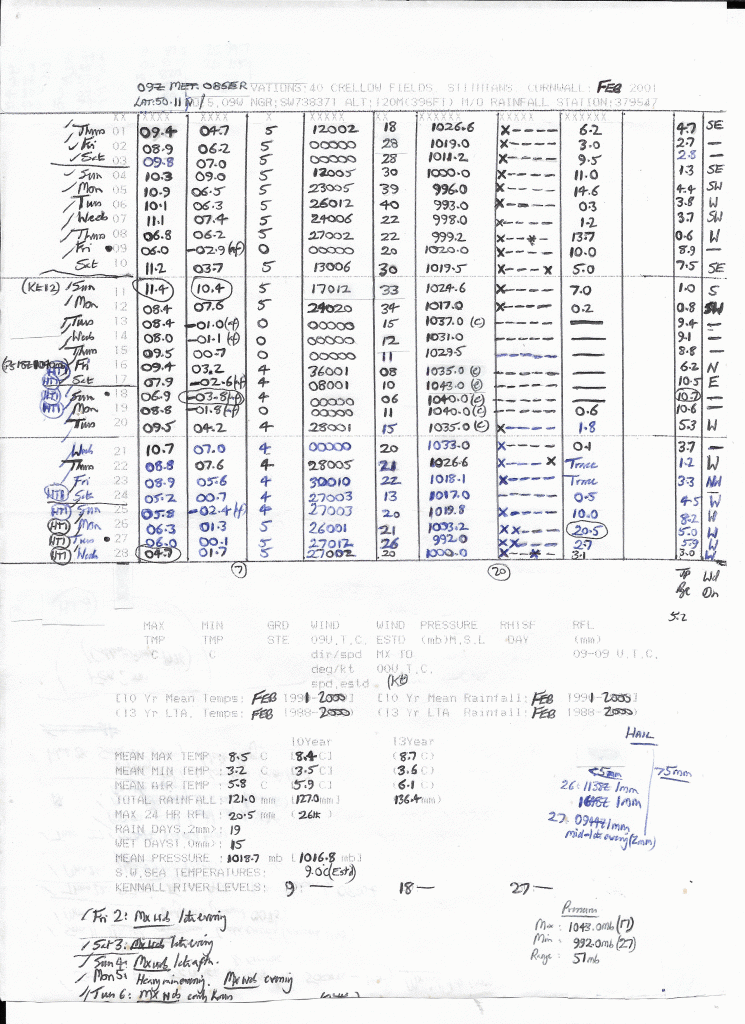 09Z MET. OBSERVATIONS: 40 CRELLOW FIELDS, STITHIANS, CORNWALL: FEB 2001
LAT:50.11N 5.09W NGR:SW738371 ALT:120M(396FT) M/O RAINFALL STATION:379547
XX XXXX XXXX X XXXXX XX XXXXXX XXXXX XXXX
Thurs 01 09.4 04.7 5 12002 18 1026.6 X---- 6.2 4.7 SE
Fri 02 08.9 06.2 5 00000 28 1019.0 X---- 3.0 2.7 —
Sat 03 09.8 07.0 5 00000 28 1011.2 X---- 9.5 2.8 —
Sun 04 10.3 09.0 5 12005 30 1000.0 X---- 11.0 1.3 SE
Mon 05 10.9 06.5 5 23005 39 996.0 X---- 14.6 4.4 SW
Tues 06 10.1 06.3 5 26012 40 993.0 X---- 0.3 3.8 W
Weds 07 11.1 07.4 5 24006 22 998.0 X---- 1.2 3.7 SW
Thurs 08 06.8 06.2 5 27002 22 999.2 X--*- 13.7 0.6 W
Fri •09 06.0 -02.9(af) 0 00000 20 1020.0 X---- 10.0 8.9 —
Sat 10 11.2 03.7 5 13006 30 1019.5 X---X 5.0 7.5 SE
(KE12) Sun 11 11.4 10.4 5 17012 33 1024.6 X---- 7.0 1.0 S
Mon 12 08.4 07.6 5 24020 34 1017.0 X---- 0.2 0.8 SW
Tues 13 08.4 -01.0(af) 0 00000 15 1037.0 (c) ----- — 9.4 —
Weds 14 08.0 -01.1(af) 0 00000 12 1031.0 ----- — 9.1 —
Thurs 15 09.5 00.7 0 00000 11 1029.5 ----- — 8.8 —
Fri 16 09.4 03.2 4 36001 08 1035.0 (c) ----- — 6.2 N
(HT1) Sat 17 07.9 -02.6(af) 4 08001 10 1043.0 (c) ----- — 10.5 E
(HT1) Sun •18 06.9 -03.8(af) 4 00000 06 1040.0 (c) ----- — 10.7 —
(HT1) Mon 19 08.8 -01.8(af) 0 00000 11 1040.0 (c) ----- 0.6 10.6 —
Tues 20 09.5 04.2 4 28001 15 1035.0 (c) X---- 1.8 5.3 W
Weds 21 10.7 07.0 4 00000 20 1033.0 X---- 0.1 3.7 —
Thurs 22 08.8 07.6 4 28005 21 1026.6 X---X Trace 1.2 W
Fri 23 08.9 05.6 4 30010 22 1018.1 X---- Trace 3.3 NW
(HT1) Sat 24 05.2 00.7 4 27003 13 1017.0 ----- 0.5 4.5 W
(HT1) Sun 25 05.8 -02.4(af) 4 27003 20 1019.8 X---- 10.0 8.2 W
(HT1) Mon 26 06.3 01.3 5 26001 21 1003.2 XX--- 20.5 5.0 W
(HT1) Tues •27 06.0 00.1 5 27012 26 992.0 XX--- 2.7 5.9 W
(HT1) Weds 28 04.7 01.7 5 27002 20 1000.0 X--*-- 3.1 3.0 W
(7) (20) Tp Wd
Rge Dn
5.2
MAX MIN GRD WIND WIND PRESSURE RH:SF RFL
TMP TMP STE 09U.T.C. ESTD (mb)M.S.L -DAY (mm)
C C dir/spd MX TO 09-09 U.T.C.
deg/kt 00U.T.C.
spd,estd. (Kt)
[10 Yr Mean Temps: FEB 1991-2000] [10 Yr Mean Rainfall: FEB 1991-2000]
(13 Yr LTA, Temps: FEB 1988-2000) (13 Yr LTA Rainfall: FEB 1988-2000)
HAIL
10Year 13Year
<5mm >5mm
MEAN MAX TEMP : 8.5 C [8.4 C] (8.7 C)
MEAN MIN TEMP : 3.2 C [3.5 C] (3.6 C)
MEAN AIR TEMP : 5.8 C [5.9 C] (6.1 C)
26: 1138Z 1mm
TOTAL RAINFALL: 121.0 mm [127.0mm] (136.4mm)
1mm
MAX 24 HR RFL : 20.5 mm (26th)
27: 1mm
RAIN DAYS,2mm): 19
mid-late evening (2mm)
WET DAYS1.0mm): 15
MEAN PRESSURE : 1018.7 mb [1016.8 mb]
S.W.SEA TEMPERATURES: 9.0C (Estd)
KENNALL RIVER LEVELS: 9 — 18 — 27 —
Pressure
Max : 1043.0mb (17)
Min : 992.0mb (27)
Range : 51mb
Fri 2: Mx wd late evening
Sat 3: Mx wd late evening
Sun 4: Mx wd late aftn.
Mon 5: Heavy rain evening. Mx wd evening
Tues 6: MX Wds early hours